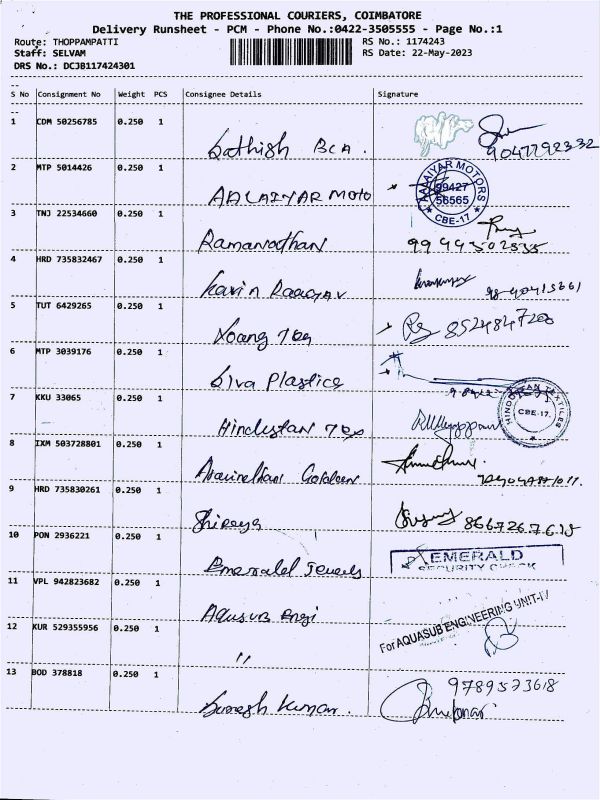 THE PROFESSIONAL COURIERS, COIMBATORE
Delivery Runsheet - PCM - Phone No.:0422-3505555 - Page No.:1
Route: THOPPAMPATTI RS No.: 1174243
Staff: SELVAM RS Date: 22-May-2023
DRS No.: DCJB117424301
S No Consignment No Weight PCS Consignee Details Signature
1 CDM 50256785 0.250 1
Sathish BCA.
2 MTP 5014426 0.250 1
AALAIYAR MOTO
AALAIYAR MOTORS 99427 56565 CBE-17
3 TNJ 22534660 0.250 1
Ramanathan
4 HRD 735832467 0.250 1
Kavin Raagav
5 TUT 6429265 0.250 1
8524847208
6 MTP 3039176 0.250 1
Siva Plastics
7 KKU 33065 0.250 1
Hindustan Tex
HINDUSTAN TEXTILES CBE-17.
8 IXM 503728801 0.250 1
9 HRD 735830261 0.250 1
10 PON 2936221 0.250 1
Emerald Jewels
EMERALD
SECURITY CHECK
11 VPL 942823682 0.250 1
Aqusub Engi
For AQUASUB ENGINEERING UNIT-IV
12 KUR 529355956 0.250 1
"
13 BOD 378818 0.250 1
9789573618
Suresh Kumar.